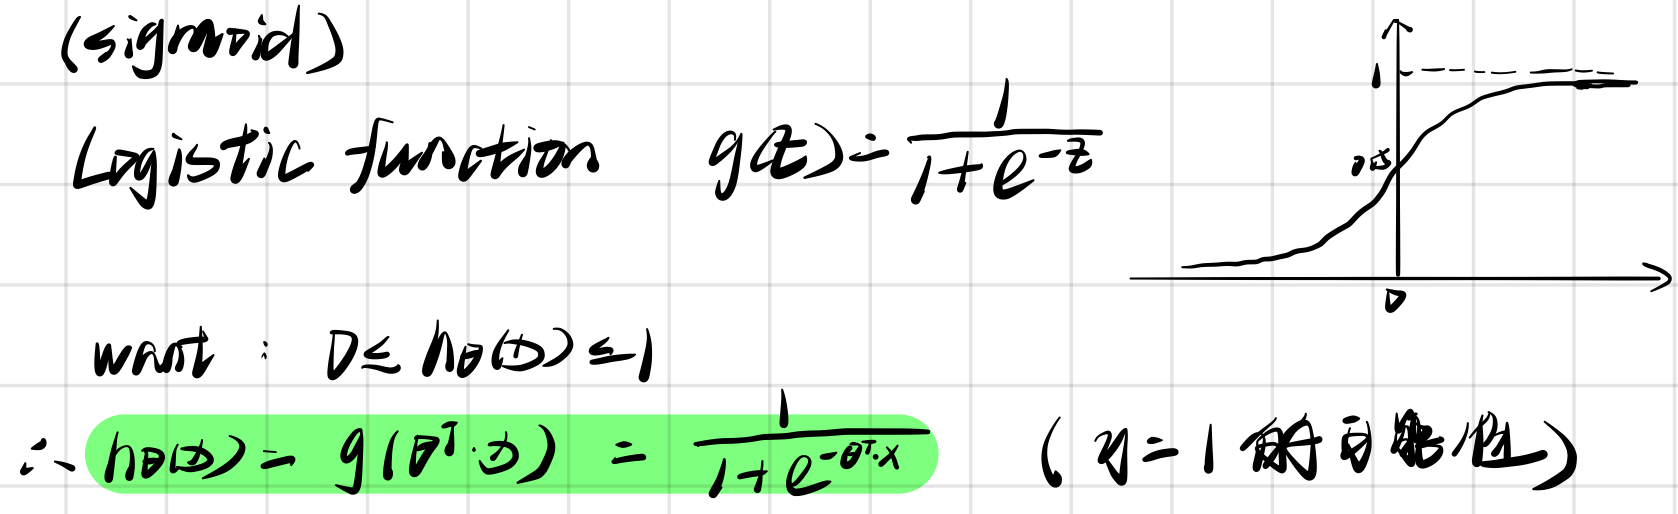 (sigmoid)
Logistic function g(z) = 1/(1+e^{-z})
1
0.5
0
want : 0 ≤ hθ(x) ≤ 1
∴ hθ(x) = g(θ^T·x) = 1/(1+e^{-θ^T·x}) (y=1 的可能值)